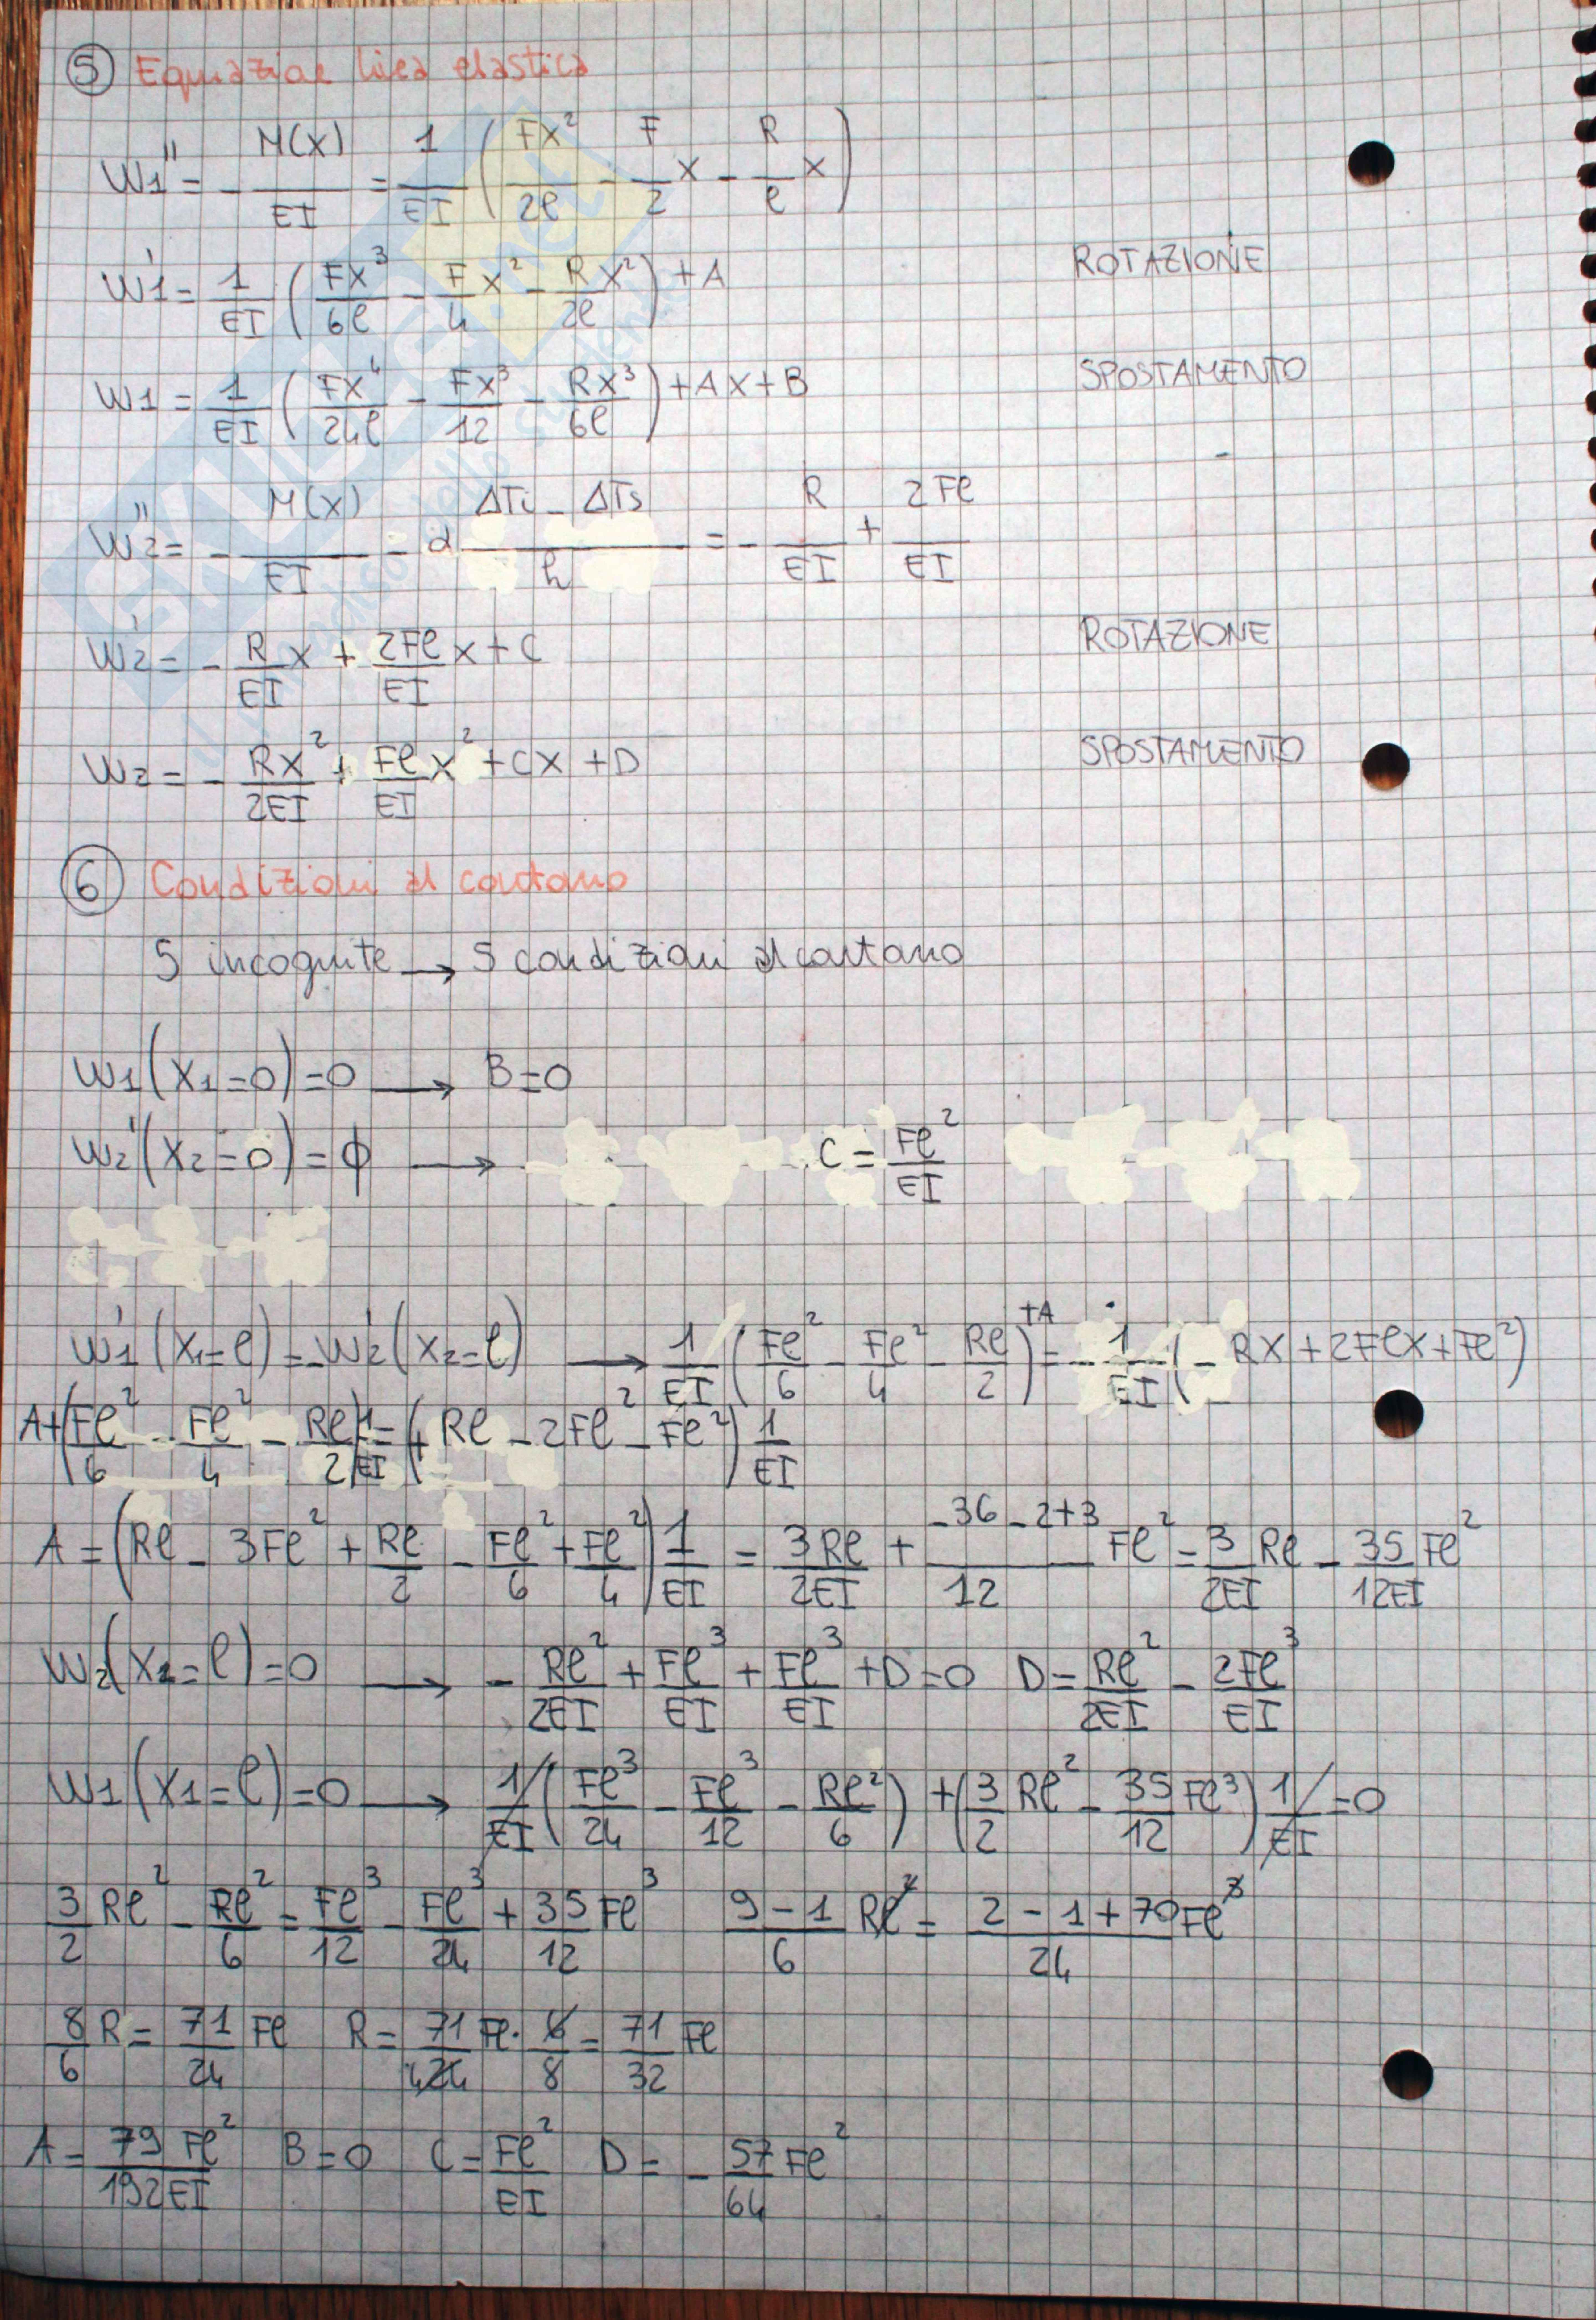 ⑤ Equazione linea elastica
W1'' = - M(x)/EI = 1/EI ( Fx²/2l - F/2 x - R/l x )
W1' = 1/EI ( Fx³/6l - F/4 x² - R/2l x² ) + A ROTAZIONE
W1 = 1/EI ( Fx⁴/24l - Fx³/12 - Rx³/6l ) + Ax + B SPOSTAMENTO
W2'' = - M(x)/EI - α (ΔTi - ΔTs)/h = - R/EI + 2Fl/EI
W2' = - R/EI x + 2Fl/EI x + C ROTAZIONE
W2 = - Rx²/2EI + Fl/EI x² + Cx + D SPOSTAMENTO
⑥ Condizioni al contorno
5 incognite → 5 condizioni al contorno
W1(x1=0)=0 → B=0
W2'(x2=0)=ϕ → C = Fl²/EI
W1'(x1=l) = -W2'(x2=l) → 1/EI ( Fl²/6 - Fl²/4 - Rl/2 ) +A = - 1/EI ( - Rx + 2Flx + Fl² )
A+( Fl²/6 - Fl²/4 - Rl/2 ) 1/EI = ( + Rl - 2Fl² - Fl² ) 1/EI
A = ( Rl - 3Fl² + Rl/2 - Fl²/6 + Fl²/4 ) 1/EI = 3Rl/2EI + (-36-2+3)/12 Fl² = 3/2EI Rl - 35/12EI Fl²
W2(x2=l)=0 → - Rl²/2EI + Fl³/EI + Fl³/EI + D = 0 D = Rl²/2EI - 2Fl³/EI
W1(x1=l)=0 → 1/EI ( Fl³/24 - Fl³/12 - Rl²/6 ) + ( 3/2 Rl² - 35/12 Fl³ ) 1/EI = 0
3/2 Rl² - Rl²/6 = Fl³/12 - Fl³/24 + 35/12 Fl³ (9-1)/6 Rl² = (2-1+70)/24 Fl³
8/6 R = 71/24 Fl R = 71/4 24 Fl · 6/8 = 71/32 Fl
A = 79 Fl²/192EI B=0 C = Fl²/EI D = - 57/64 Fl²